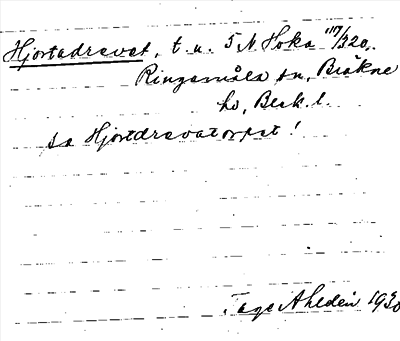 Hjortadravat, t. u. 5 N Hoka 117/320,
Ringamåla sn, Bräkne
hd, Blek. l.
sa Hjortdravatorpet!
Tage Ahldén 1930